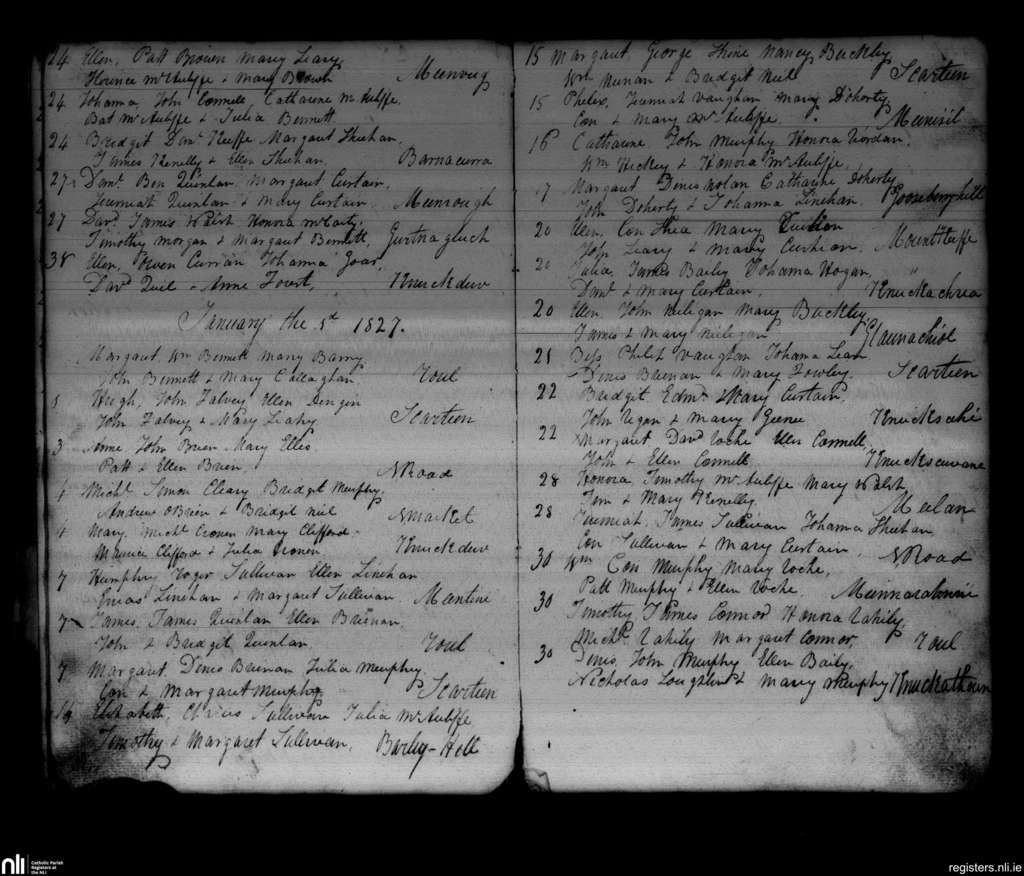 24 Ellen, Patt Brown Mary Leary
Florence McAuliffe & Mary Brown Meenvug
24 Johanna, John Connell, Catharine McAuliffe,
Bat McAuliffe & Julia Bennett
24 Bridget Danl Keeffe Margaut Sheehan,
James Kenelly & Ellen Sheehan, Barnacurra
27 Danl. Ben Quinlan, Margaut Curtain,
Jeremiah Quinlan & Mary Curtain, Meenvough
27 Davd. James Walsh Honora McCarty,
Timothy Morgan & Margaut Bennett, Gurtnagluch
Ellen, Owen Curran Johanna
Davd Anne Knuckduv
January the 1st 1827.
Margaut, Wm Bennett Mary Barry,
John Bennett & Mary Callaghan Youl
1 Hugh, John Falvey Ellen
John Falvey & Mary Leahy Scarteen
3 Anne John Bruen Mary Elles
Patt & Ellen Bruen, NRoad
4 Michl Simon Cleary Bridget Murphy
Andrew OBrien & Bridget Neil NMarket
4 Mary, Michl Cronen Mary Clifford
Maurice Clifford & Julia Cronen Knuckduv
7 Humphry Roger Sullivan Ellen Linehan
Linehan & Margaut Sullivan. Mantini
7 James, James Quinlan Ellen Brusnan,
John & Bridget Quinlan, Youl
7 Margaut Denis Busnan Julia Murphy,
Con & Margaret Murphy Scarteen
14 Elizabeth, Sullivan Julia McAuliffe
Timothy & Margaret Sullivan, Barley-Hill
15 Margaut, George Shine Nancy Buckley
Wm & Bridget Scarteen
15 Jeremiah Vaughan Mary Doherty
Con & Mary McAuliffe,
16 Catharine, John Murphy Honora
Wm Hickey & Honora McAuliffe,
17 Margaut Denis Nolan Catharine Doherty,
John Doherty & Johanna Linehan. Gooseberryhill
20 Ellen, Con Shea Mary
John Leary & Mary
20 Julia, James Baily Johanna Hogan,
Danl & Mary Curtain, Knuckachrea
20 Ellen, John Mulligan Mary Buckley
James & Mary Mulligan Glaunachiol
21 Bess Philip Vaughan Johanna Lean
Denis Busnan & Mary Fowley, Scarteen
22 Bridget, Edmd. Mary Curtain,
John & Mary
22 Margaut Davd Roche Ellen Connell,
John & Ellen Connell Knuckscuvane
28 Honora, Timothy McAuliffe Mary Walsh
Tim & Mary Kenelly Meelan
28 Jeremiah, James Sullivan Johanna Sheehan
Con Sullivan & Mary Curtain, NRoad
30 Wm Con Murphy Mary Roche,
Patt Murphy & Ellen Roche,
30 Timothy James Connor Honora Rahily
Michl. Rahily Margaut Connor, Youl
30 Denis, John Murphy Ellen Baily,
Nicholas & Mary Murphy Knuckathoun
nli
Catholic Parish
Registers at
the NLI
registers.nli.ie